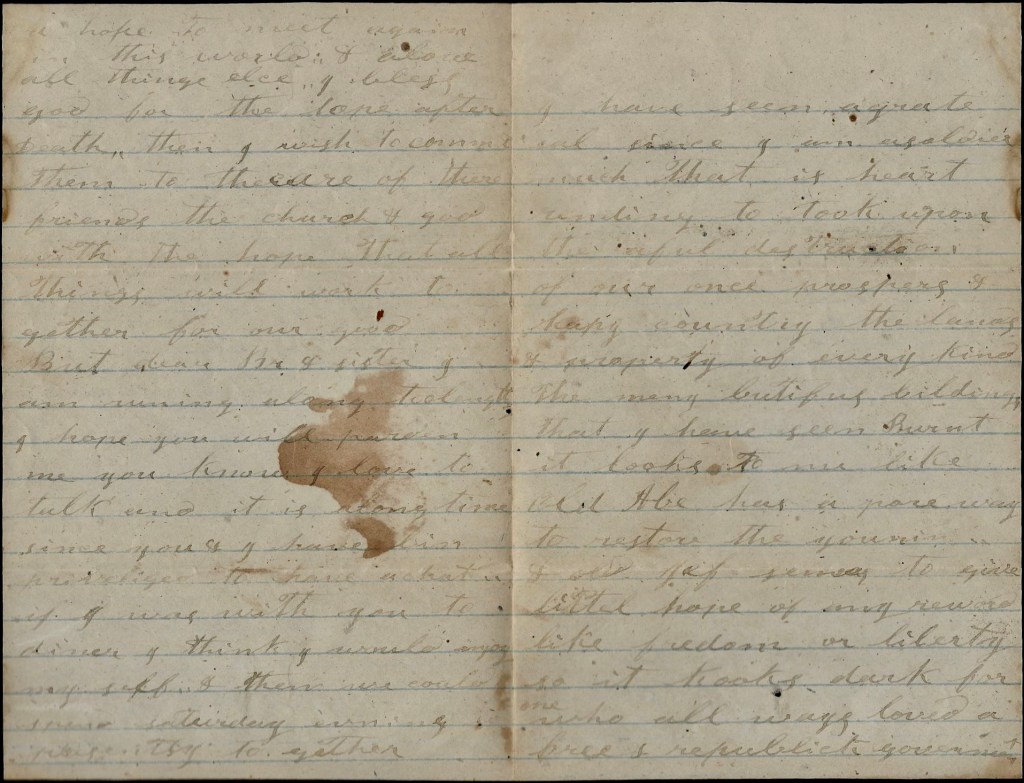 a hope to meet again
in this world, & alove
all things else, y bless
god for the hope after
Death, then y wish to
them to thecare of there
friends the church & god
with the hope that all
Things will work to
gether for our good
But dear Br & sister y
am runing along
y hope you will parden
me you know y love to
talk and it is along time
since you & y have bin
priveliged to have achat
if y was with you to
diner y think y would
my self, & then we could
saturday evning
to gether
y have seen agrate
eal since y am asoldier
much that is heart
to look upon
the
of our once prospers &
hapy country the lands
& property of every kind
the meny butifus bildings
that y have seen Burnt
it looks to me like
old Abe has a pore way
to restore the
& to give
little hope of my reword
like fredom or liberty
so it looks dark for
one
who all ways loved a
free & republick